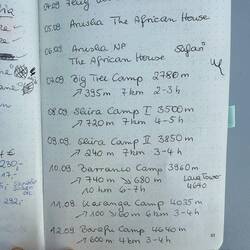 05.09. Arusha The African House
06.09. Arusha NP Safari
The African House
07.09. Big Tree Camp 2780m
↗ 395m 7km 2-3h
08.09. Shira Camp I 3500m
↗ 720m 7km 4-5h
09.09. Shira Camp II 3850m
↗ 240m 7km 3-4h
10.09. Barranco Camp 3960m
↗ 740m ↘ 680m Lava Tower
10km 6-7h 4640
11.09. Karanga Camp 4035m
↗ 100 100m 6km 3-4h
12.09. Barafu Camp 4640m
↗ 600m 4km 3-4h
230,-